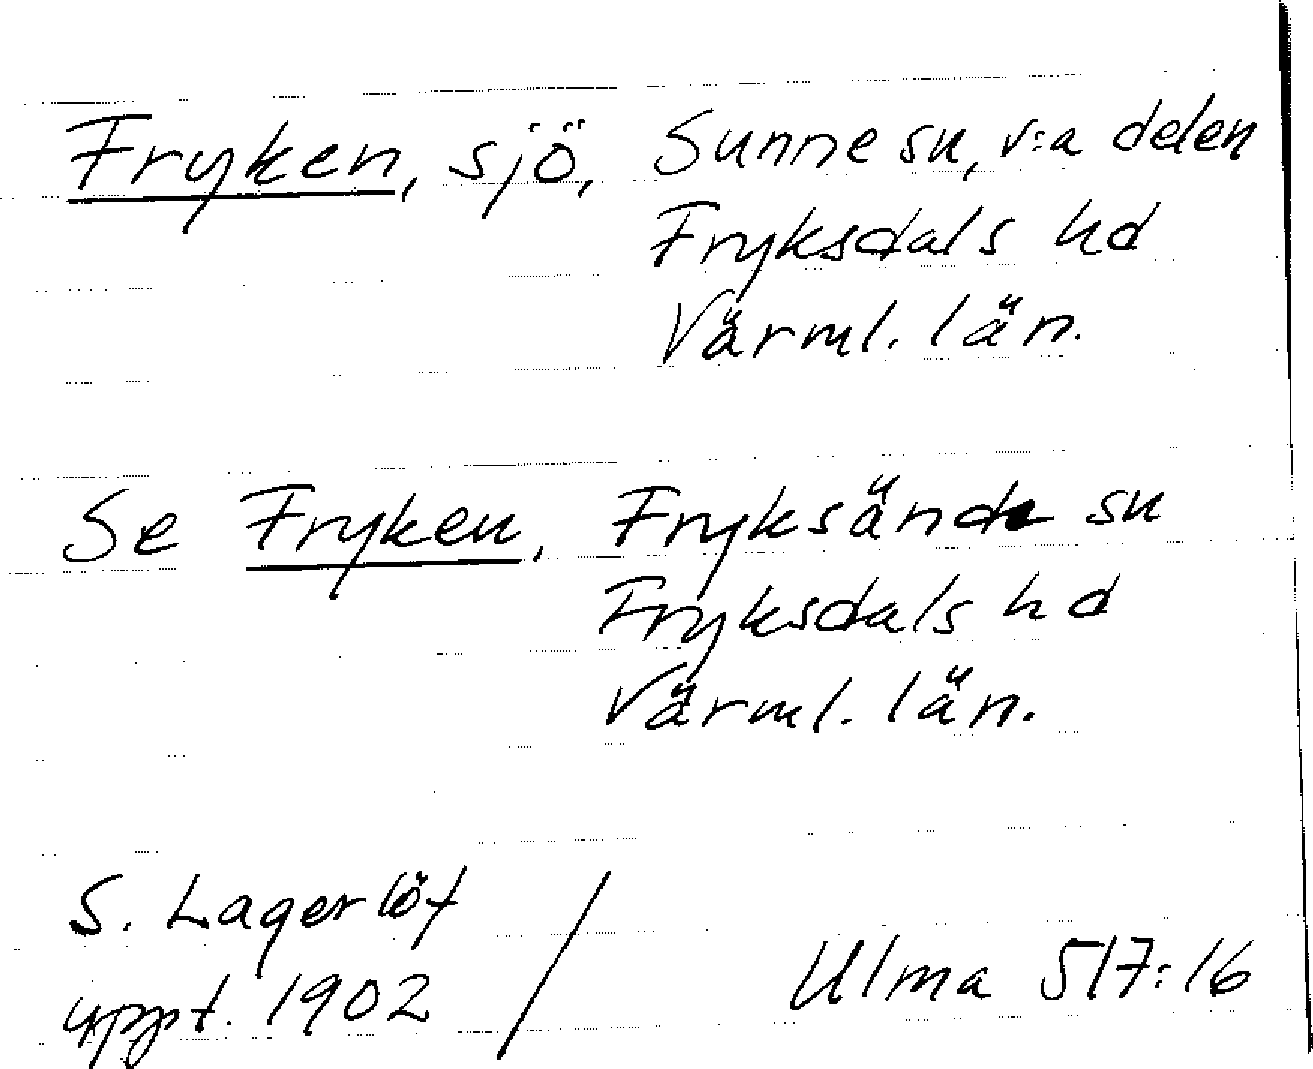 Fryken, sjö, Sunne sn, v:a delen
Fryksdals hd
Värml. län.
Se Fryken, Fryksände sn
Fryksdals hd
Värml. län.
S. Lagerlöf
uppt. 1902 / Ulma 517:16